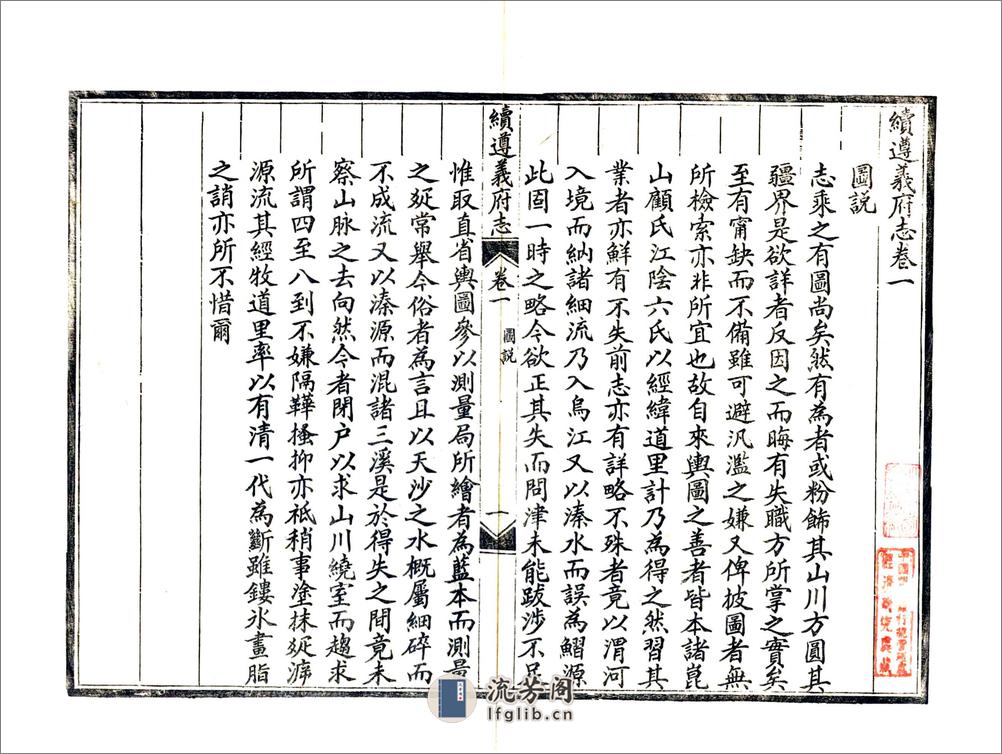 續遵義府志卷一
圖説
志乘之有圖尚矣然有為者或粉飾其山川方圓其
疆界是欲詳者反因之而晦有失職方所掌之實矣
至有甯缺而不備雖可避汎濫之嫌又俾披圖者無
所檢索亦非所宜也故自來輿圖之善者皆本諸崑
山顧氏江陰六氏以經緯道里計乃為得之然習其
業者亦鮮有不失前志亦有詳略不殊者竟以渭河
入境而納諸細流乃入烏江又以溱水而誤為鰼源
此固一時之略今欲正其失而問津未能跋涉不足
續遵義府志 卷一 圖説 一
惟取直省輿圖參以測量局所繪者為藍本而測量
之疑常舉今俗者為言且以天沙之水概屬細碎而
不成流又以溱源而混諸三溪是於得失之間竟未
察山脉之去向然今者閉户以求山川繞室而趨求
所謂四至八到不嫌隔鞾搔抑亦祗稍事塗抹
源流其經牧道里率以有清一代為斷雖鏤氷畫脂
之誚亦所不惜爾
流芳阁
lfglib.cn